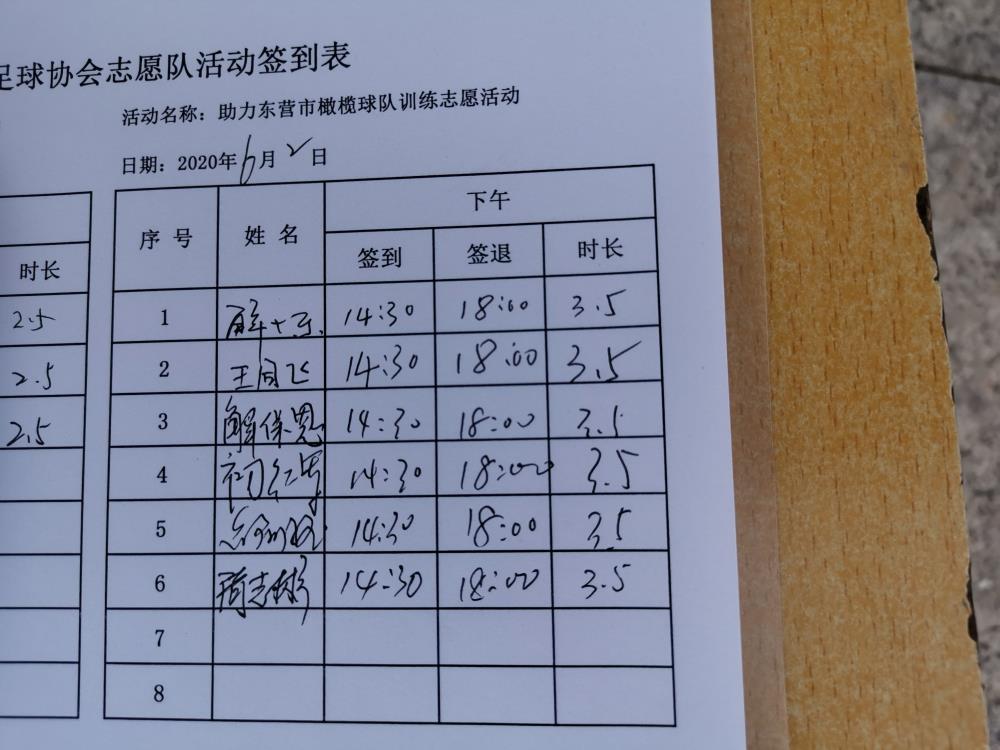 足球协会志愿队活动签到表
活动名称：助力东营市橄榄球队训练志愿活动
日期：2020年6月2日
下午
序号 姓名 签到 签退 时长
时长
2.5
2.5
2.5
1 14:30 18:00 3.5
2 王同飞 14:30 18:00 3.5
3 解保恩 14:30 18:00 3.5
4 初红军 14:30 18:00 3.5
5 14:30 18:00 3.5
6 周志彬 14:30 18:00 3.5
7
8